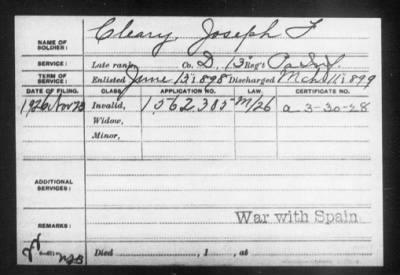 NAME OF SOLDIER: Cleary Joseph F
SERVICE: Late rank, Co. D, 13 Reg't Pa Inf.
TERM OF SERVICE: Enlisted June 13 1898 Discharged Mch 11 1899
DATE OF FILING. CLASS. APPLICATION NO. LAW. CERTIFICATE NO.
1926 Nov 23 Invalid, 1562305 M/26 a 3-30-28
Widow,
Minor,
ADDITIONAL SERVICES:
War with Spain
REMARKS:
Died , 1 , at